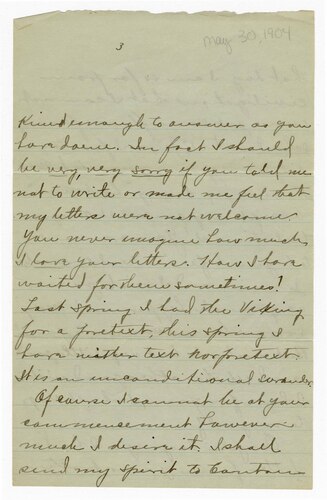 May 30, 1904
3
Kind enough to answer as you
have done. In fact I should
be very, very sorry if you told me
not to write or made me feel that
my letters were not welcome.
You never imagine how much
I love your letters. How I have
waited for them sometimes!
Last spring I had the Viking
for a pretext, this spring I
have neither text nor pretext.
It is an unconditional surrender.
Of course I cannot be at your
commencement however
much I desire it. I shall
send my spirit to Canton